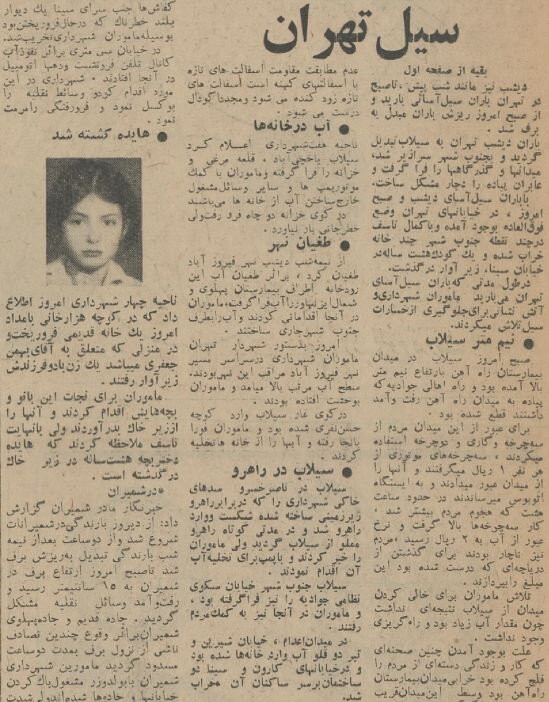 سیل تهران
بقیه از صفحه اول
دیشب نیز مانند شب پیش، تاصبح
در تهران باران سیل‌آسائی بارید و
از صبح امروز ریزش باران مبدل به
برف شد .
باران دیشب تهران به سیلاب‌تبدیل
گردید و بجنوب شهر سرازیر شد،
میدانها و گذرگاهها را فرا گرفت و
عابران پیاده را دچار مشکل ساخت.
باباران سیل‌آسای دیشب و صبح
امروز ، در خیابانهای تهران وضع
فوق‌العاده بوجود آمده وباکمال تاسف
درچند نقطه جنوب شهر چند خانه
خراب شده و یک کودک‌هشت ساله‌در
خیابان سینا، زیر آوار درگذشت.
درطول مدتی که‌باران سیل‌آسای
تهران می‌بارید ماموران شهرداری‌و
آتش نشانی‌برای‌جلوگیری ازخسارات
سیل‌تلاش میکردند.
● نیم متر سیلاب
صبح امروز سیلاب در میدان
بیمارستان راه آهن بارتفاع نیم متر
بالا آمده بود و راه اهالی جوادیه‌که
پیاده به میدان راه آهن رفت وآمد
داشتند قطع شده بود .
برای عبور از این میدان مردم از
سه‌چرخه وگاری و دوچرخه استفاده
میکردند ، سه‌چرخه‌های موتوری از
هر نفر ۱ ریال میگرفتند و آنها را
از میدان عبور میدادند و به ایستگاه
اتوبوس میرساندند در حدود ساعت
هشت که هجوم مردم بیشتر شد ،
کار سه‌چرخه‌ها بالا گرفت و نرخ
عبور از آب به ۲ ریال رسید ،مردم
نیز ناچار بودند برای گذشتن از
دریاچه‌ای که درست شده بود این
مبلغ رابپردازند.
تلاش ماموران برای خالی کردن
میدان از سیلاب نتیجه‌ای نداشت
چون مقدار آب زیاد بود و راه‌گریزی
وجود نداشت .
علت بوجود آمدن چنین صحنه‌ای
که کار و زندگی دسته‌ای از مردم را
فلج کرده بود خرابی‌میدان‌بیمارستان
راه‌آهن بود وسط این‌میدان‌قریب
عدم مطابقت مقاومت آسفالت های تازه
با آسفالتهای کهنه است آسفالت های
تازه زود کنده می شود ومجددا‌گودال
درست می شود .
● آب درخانه‌ها
ناحیه هفت‌شهرداری اعلام کرد
سیلاب یاخچی‌آباد . قلعه مرغی و
خزانه را فرا گرفته و‌ماموران با کمک
موتورپمپ ها و سایر وسایل‌مشغول
خارج‌ساختن آب از خانه ها می‌باشند
در کوی خزانه دو چاه فرو رفت‌ولی
خطرجانی بار نیاورد .
● طغیان نهر
از نیمه‌شب دیشب نهر فیروز آباد
طغیان کرد ، براثر طغیان آب این
رودخانه اطراف بیمارستان پهلوی و
شمال‌این‌نهاوررا‌آب‌فرا‌گرفت،ماموران
در آنجا اقداماتی کردند وآب‌رابطرف
جنوب شهرجاری ساختند .
امروز بدستور شهردار تهران
ماموران شهرداری درسراسر مسیر
نهر فیروز آباد مراقب این نهربودند،
سطح آب مرتب بالا میآمد و ماموران
بوحشت افتاده بودند .
درکوی غار سیلاب وارد کوچه
حسن‌نفری شده بود و ماموران فورا
بانجا رفته و آنها را از خانه هاتخلیه
کردند .
● سیلاب در راهرو
سیلاب در ناصرخسرو سدهای
خاکی شهرداری را که دربرابرراهرو
زیرزمینی ساخته شده شکست ووارد
راهرو شد و در مدتی کوتاه راهرو
مملو از سیلاب گردید ولی ماموران
را خبر کردند و باپمپ‌برای تخلیه‌آب
آن اقدام نمودند .
سیلاب جنوب شهر خیابان سکوی
نظامی جوادیه را نیز فراگرفته بود ،
و ماموران در آنجا نیز به کمک‌مردم
رفتند .
در میدان‌اعدام ، خیابان شیرین و
تیر دو قلو آب وارد‌خانه‌ها شده بود
و درخیابانهای کارون و سینا دو
ساختمان‌برسر ساکنان آن خراب
شد.
کفاش‌ها جنب سرای سینا یک دیوار
بلند خطرناک که درحال‌فروریختن‌بود
بوسیله‌ماموران شهرداری‌تخریب‌شد.
در خیابان سی متری براثر نفوذ‌آب
کانال تلفن فرونشست ودهها اتومبیل
در آنجا افتادند . شهرداری در این
مورد اقدام کرد‌و وسائط نقلیه را
بوکسل نمود و فرورفتگی رامرمت
نمود .
● هایده کشته شد
ناحیه چهار شهرداری امروز اطلاع
داد که در کوچه هزارخانی بامداد
امروز یک خانه قدیمی فروریخت‌و
در منزلی که متعلق به آقای‌بهمن
جعفری میباشد یک زن‌با‌دو‌فرزندش
زیر آوار رفتند .
ماموران برای نجات این بانو و
بچه‌هایش اقدام کردند و آنها را
اززیر خاک بدرآوردند ولی بانهایت
تاسف ملاحظه کردند که هایده
دختربچه هشت‌ساله در زیر خاک
درگذشته است .
●درشمیران
خبرنگار ما‌در شمیران گزارش
داد: از دیروز بارندگی‌درشمیرانات
شروع شد و‌از دوساعت بعداز نیمه
شب بارندگی تبدیل به‌ریزش برف
شد تاصبح امروز ارتفاع برف در
شمیران به ۱۵ سانتیمتر رسید و
رفت‌وآمد وسائل نقلیه مشکل
گردید . جاده قدیم و جاده‌پهلوی
شمیران‌براثر وقوع چندین تصادف
ناشی از نزول برف بمدت دوساعت
مسدود گردید مامورین شهرداری
شمیران بابولدوزر مشغول‌پاک‌کردن
خیابانها و جاده‌ها شده‌اند‌ولی‌شدت